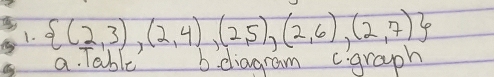 1. {(2,3),(2,4),(2,5),(2,6),(2,7)}
a. Table b. diagram c. graph